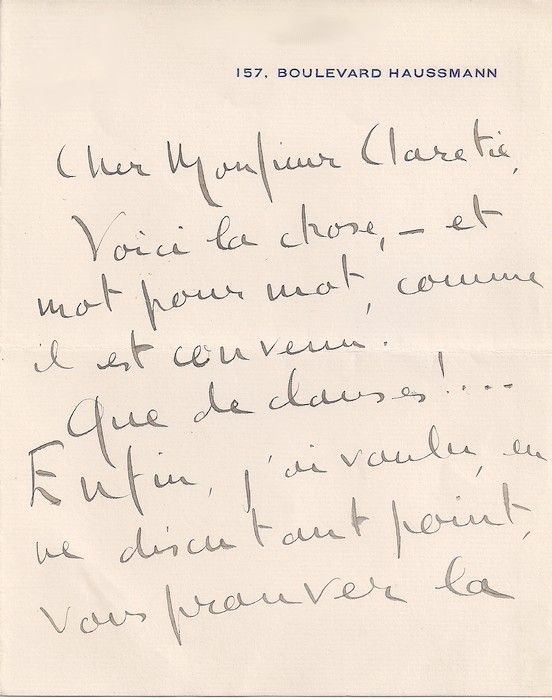 157, BOULEVARD HAUSSMANN
Cher Monsieur Claretie,
Voici la chose, – et
mot pour mot, comme
il est convenu.
Que de clauses!....
Enfin, j'ai voulu, en
ne discutant point,
vous prouver la